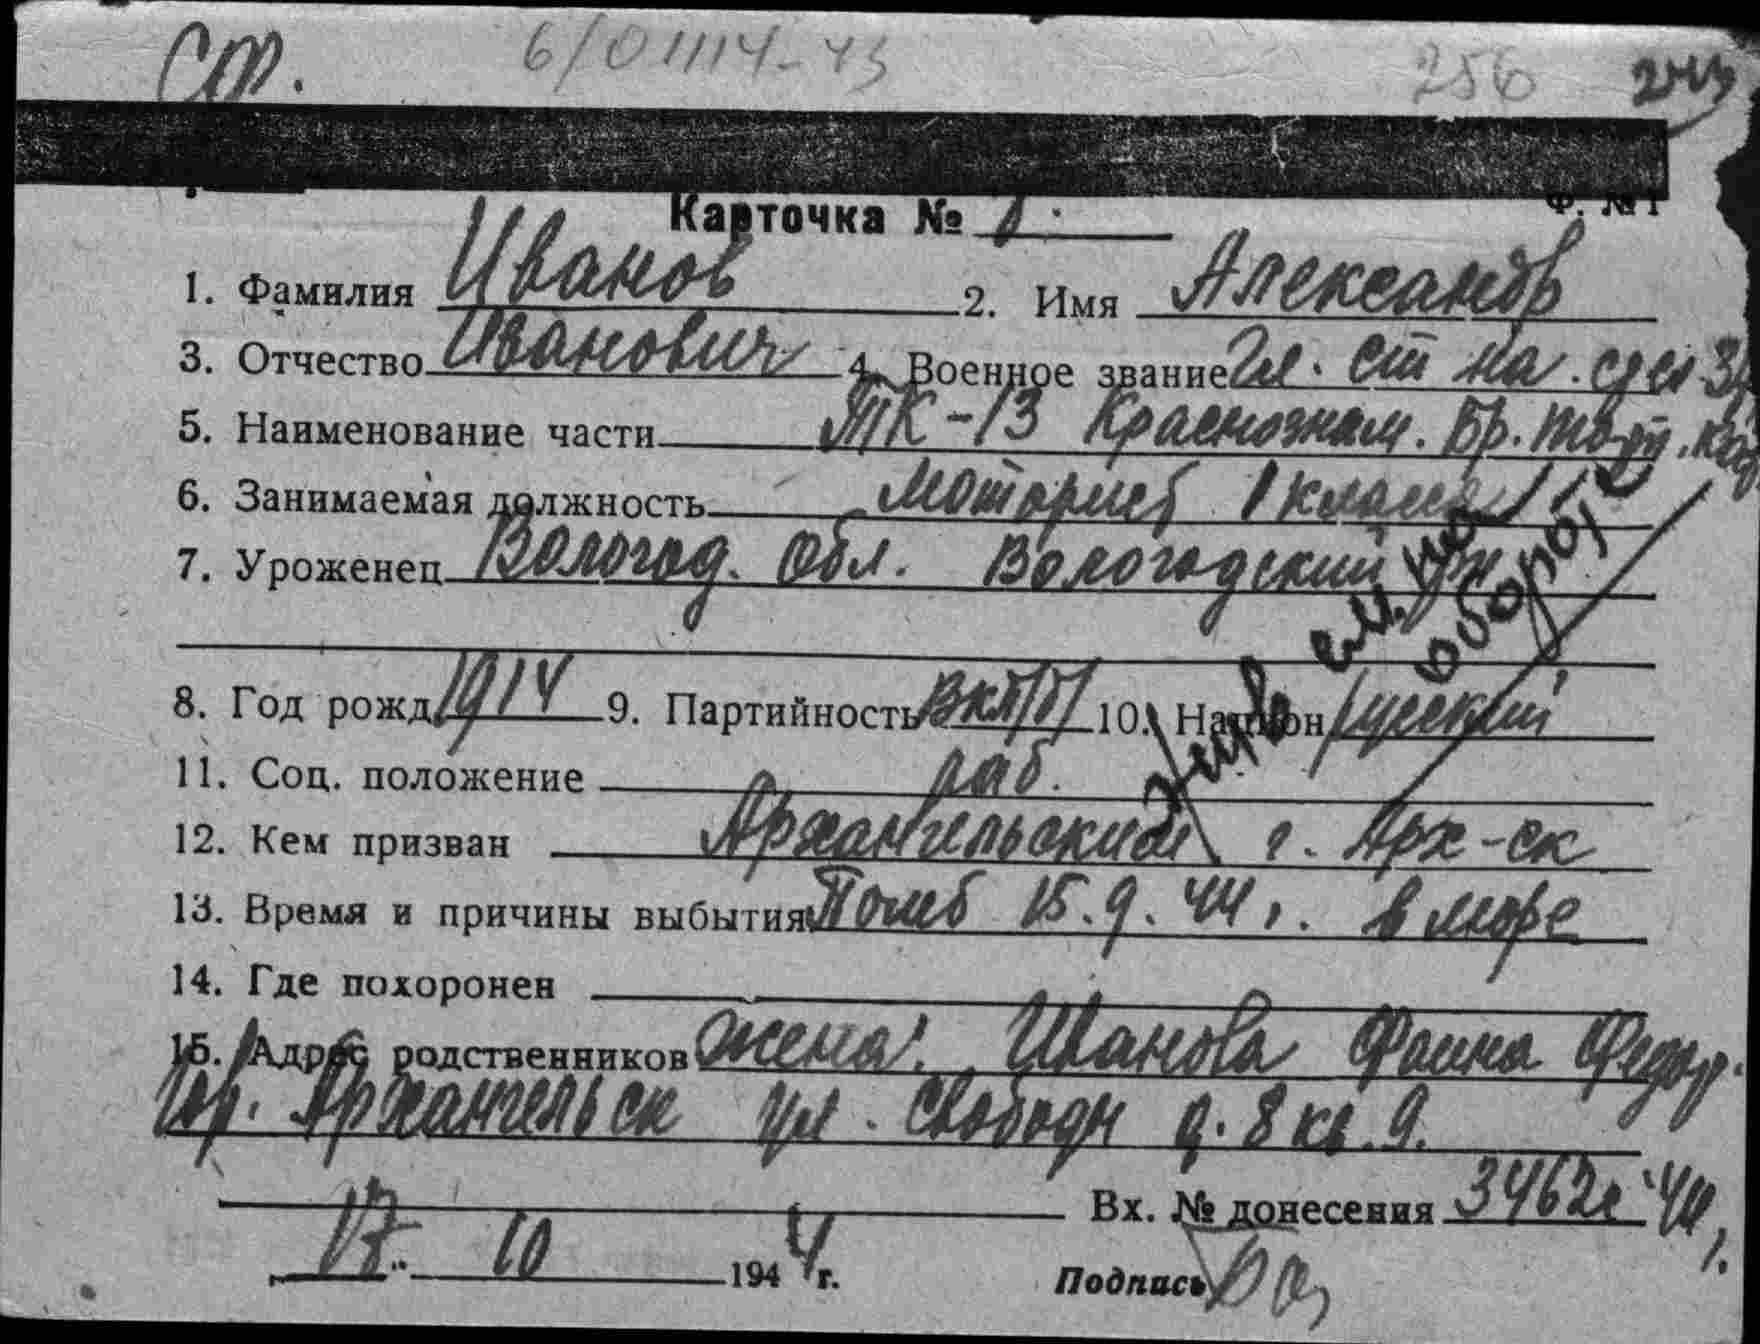 СФ.
6/01114-43
256
243
Ф. №1
Карточка №
1. Фамилия Иванов 2. Имя Александр
3. Отчество Иванович 4. Военное звание Гл. ст на.
5. Наименование части ТК-13 Краснознам. Бр.
6. Занимаемая должность Моторист 1 класса
7. Уроженец Вологод. Обл. Вологодский рн
см. на
обороте
8. Год рожд. 1914 9. Партийность ВКП/б/ 10. Национ русский
11. Соц. положение раб.
12. Кем призван Архангельский г. Арх-ск
13. Время и причины выбытия Погиб 15.9.44 г. в море
14. Где похоронен
15. Адрес родственников жена: Иванова Фаина Федор.
Гор. Архангельск ул. Свободы д. 8 кв. 9.
Вх. № донесения 3462с 44 г.
17. 10 1944 г. Подпись